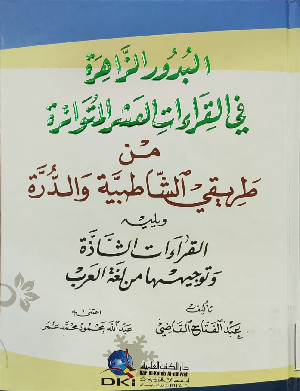 البُدُورُ الزَّاهِرَةُ
فِي القِرَاءَاتِ العَشْرِ المُتَوَاتِرَةِ
مِنْ
طَرِيقَيِ الشَّاطِبِيَّةِ وَالدُّرَّةِ
ويليه
القراءات الشاذة
وتوجيهها من لغة العرب
تأليف
عبد الفتاح القاضي
اعتنى به
عبد الله محمود محمد عمر
دار الكتب العلمية
Dar Al-Kotob Al-ilmiyah
DKi